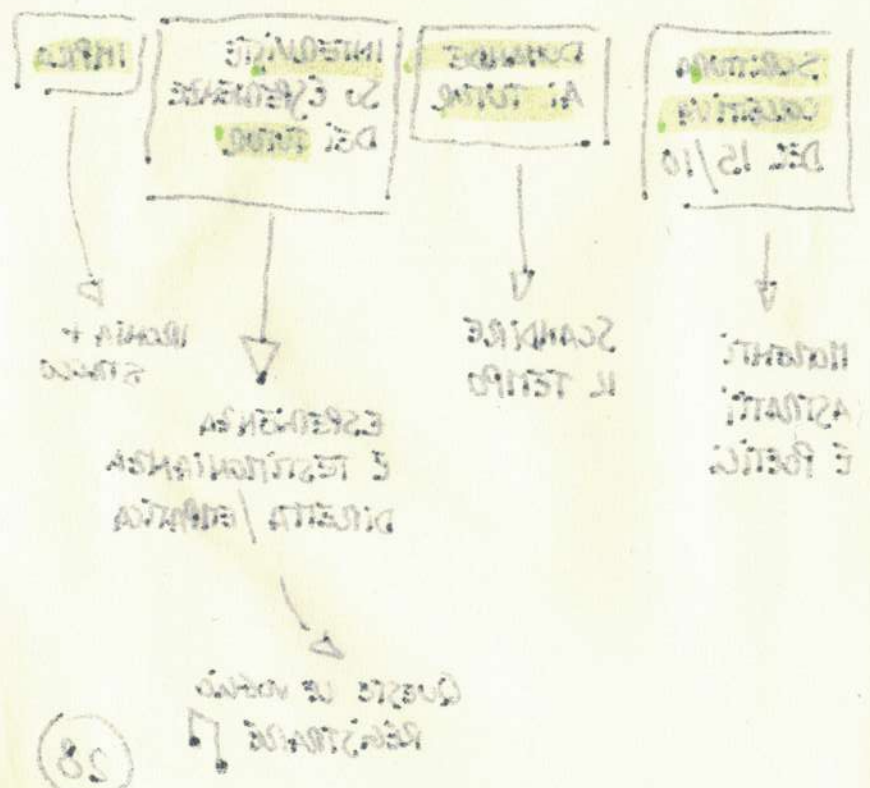 SCRITTURA
COLLETTIVA
DEL 15/10
MOMENTI
ASTRATTI
E POETICI
DOMANDE
AI TUTOR
SCANDIRE
IL TEMPO
INTERVISTE
SU ESPERIENZE
DEI TUTOR
ESPERIENZA
E TESTIMONIANZA
DIRETTA / EMPATICA
QUESTE LE VOGLIO
REGISTRARE
IMPRO
IRONIA +
STACCO
28